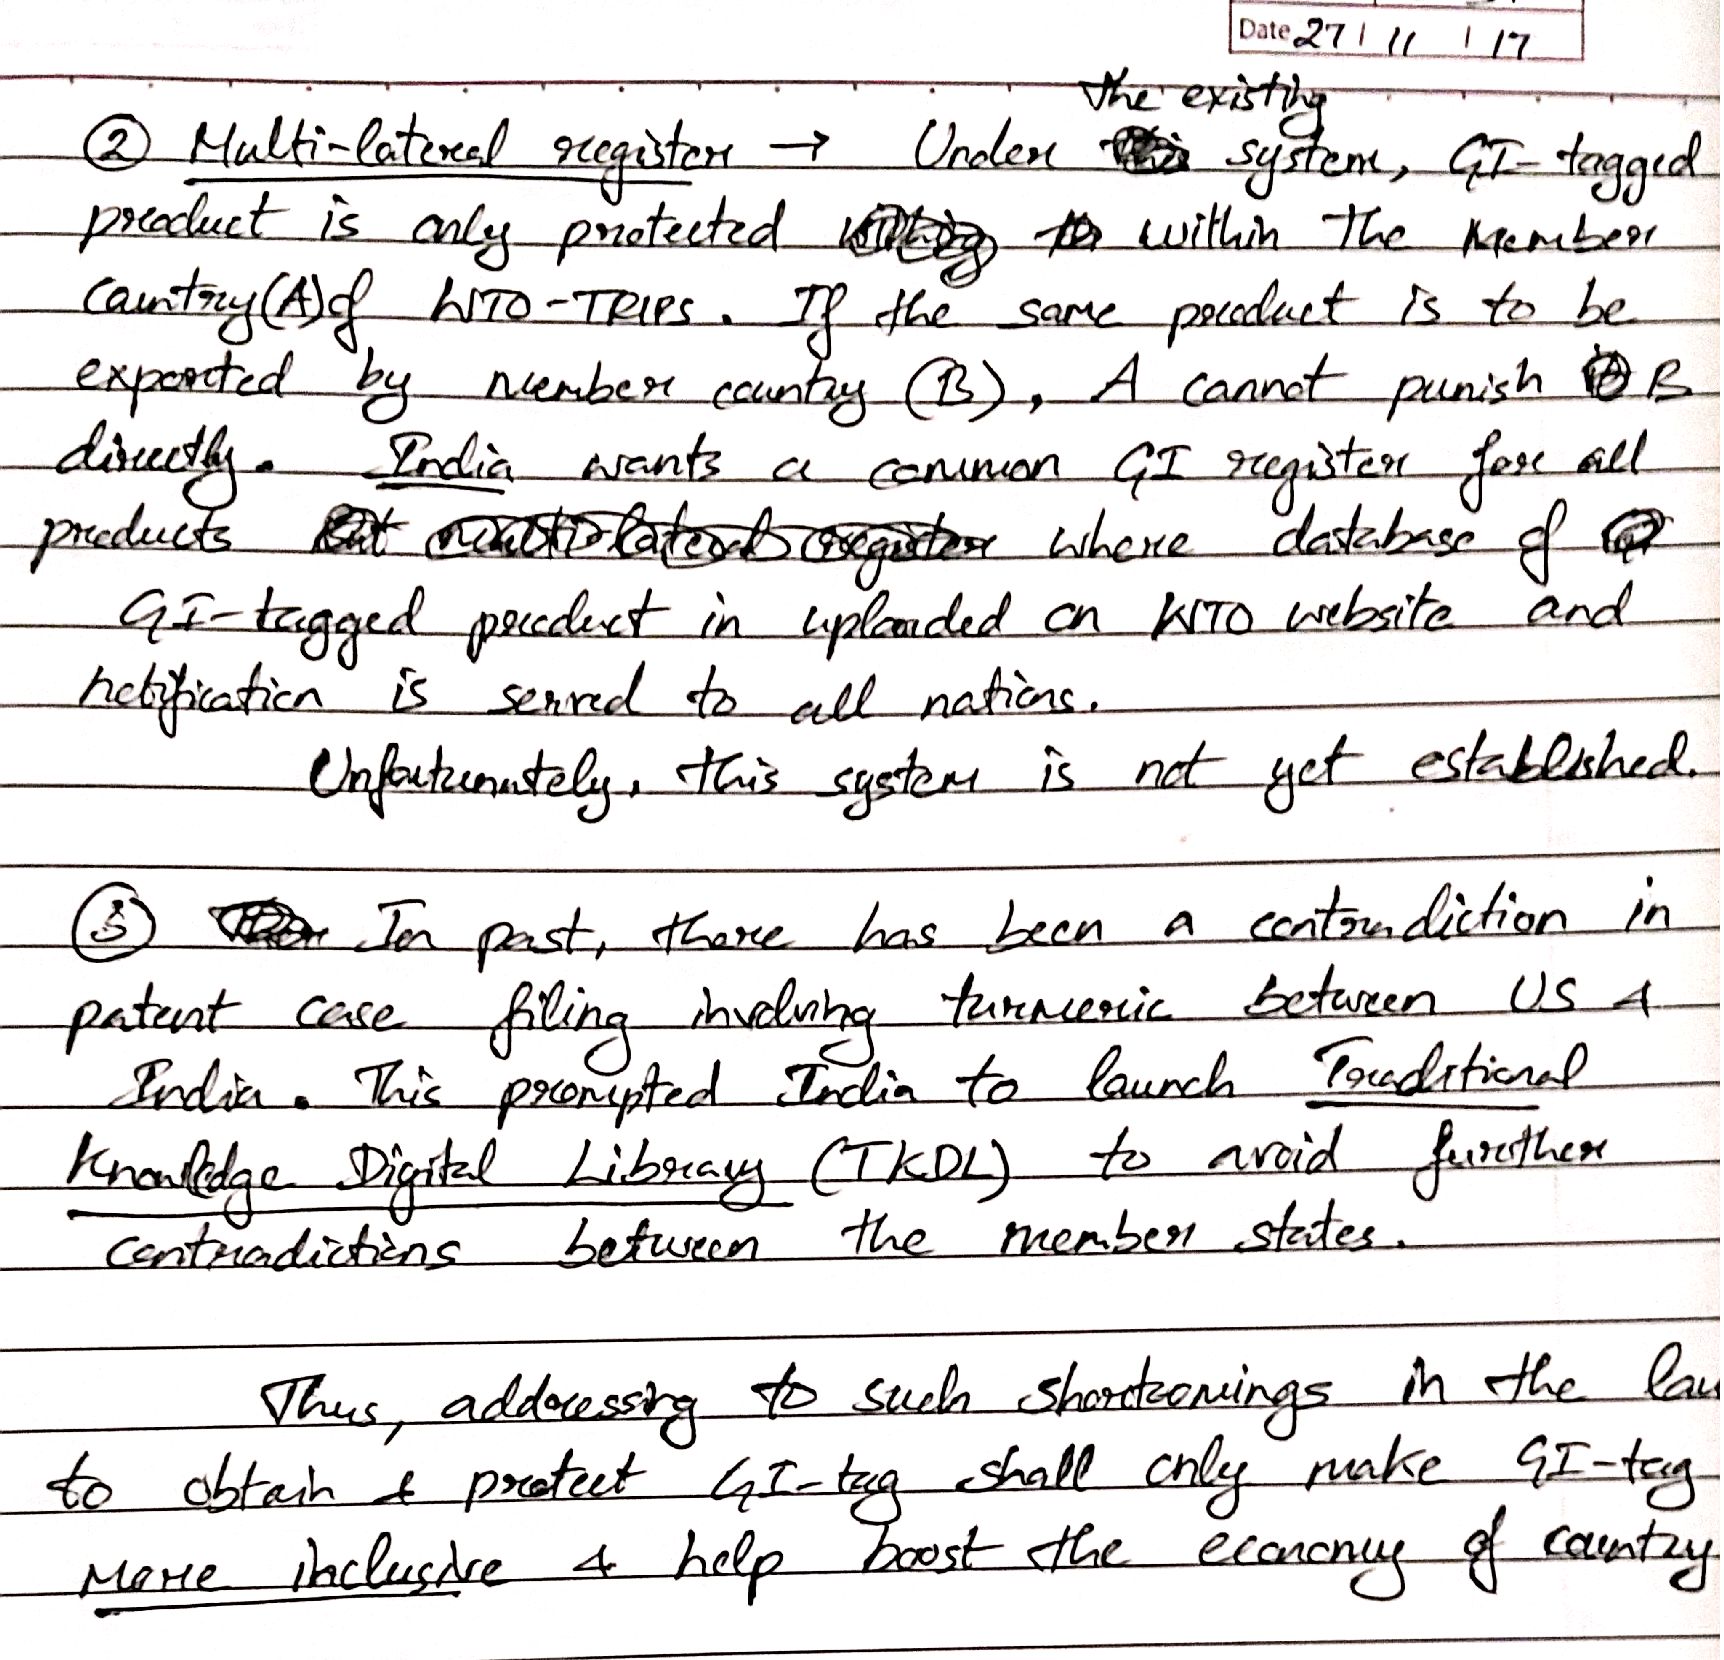 Date 27 / 11 / 17
the existing
② Multi-lateral register → Under system, GI-tagged
product is only protected within the Member
country(A) of WTO-TRIPS. If the same product is to be
exported by member country (B), A cannot punish B
directly. India wants a common GI register for all
products where database of
GI-tagged product in uploaded on WTO website and
notification is served to all nations.
Unfortunately, this system is not yet established.
③ In past, there has been a contradiction in
patent case filing involving turmeric between US &
India. This prompted India to launch Traditional
Knowledge Digital Library (TKDL) to avoid further
contradictions between the member states.
Thus, addressing to such shortcomings in the law
to obtain & protect GI-tag shall only make GI-tag
more inclusive & help boost the economy of country